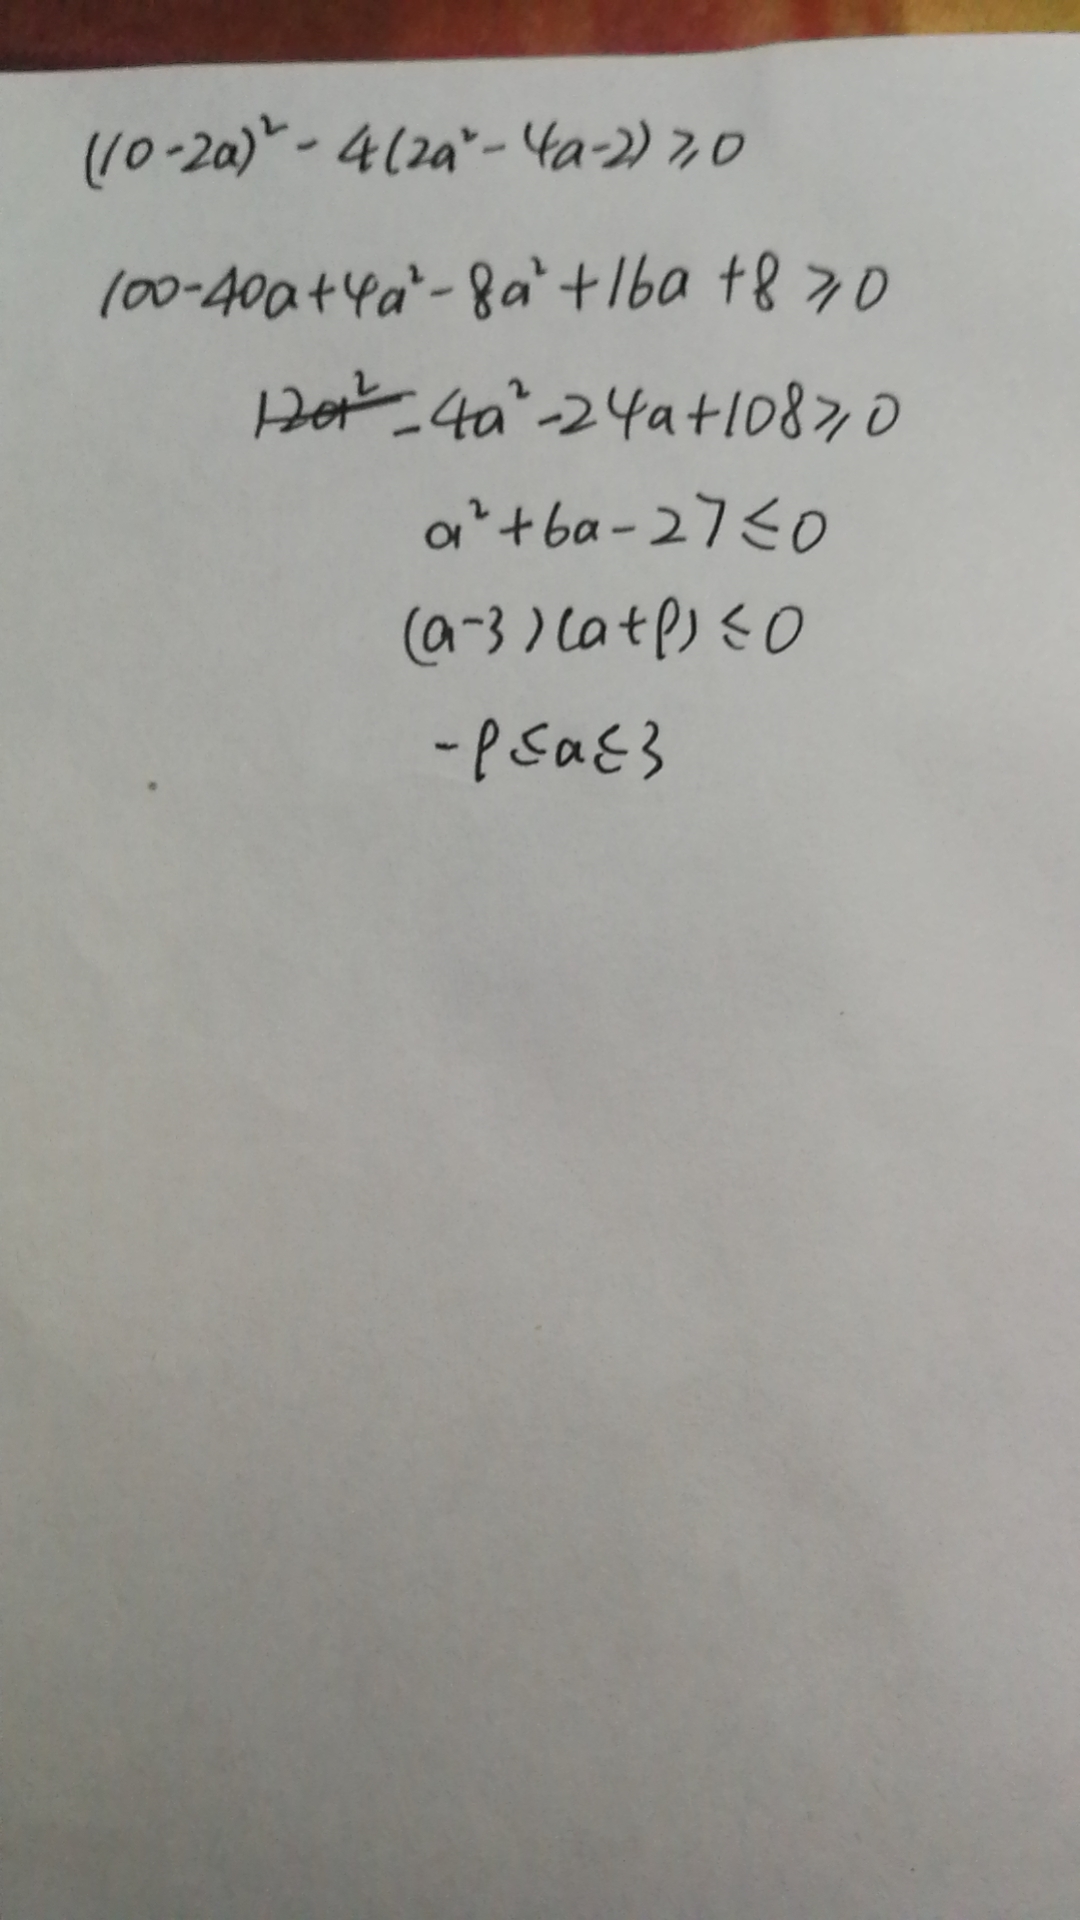 (10-2a)²-4(2a²-4a-2)≥0
100-40a+4a²-8a²+16a+8≥0
-4a²-24a+108≥0
a²+6a-27≤0
(a-3)(a+9)≤0
-9≤a≤3